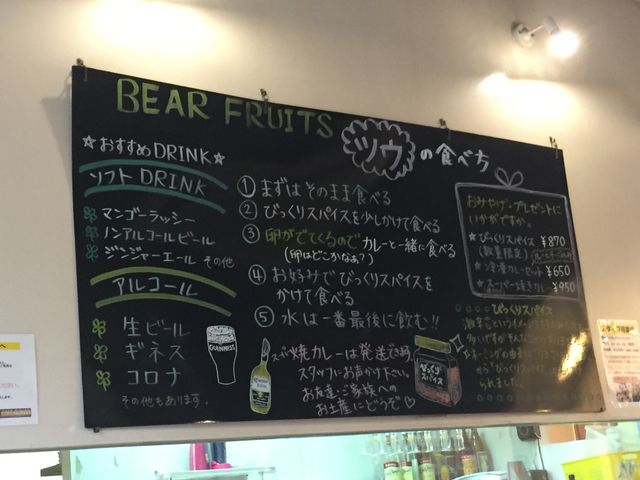 BEAR FRUITS
☆おすすめDRINK☆
ソフトDRINK
マンゴーラッシー
ノンアルコールビール
ジンジャーエール その他
アルコール
生ビール
ギネス
コロナ
その他もあります。
ツウの食べ方
①まずはそのまま食べる
②びっくりスパイスを少しかけて食べる
③卵がでてくるのでカレーと一緒に食べる
(卵はどこかなぁ?)
④お好みでびっくりスパイスを
かけて食べる
⑤水は一番最後に飲む!!
GUINNESS
スーパー焼カレーは発送できます
スタッフにお声かけ下さい。
お友達・ご家族への
お土産にどうぞ♡
びっくり
スパイス
おみやげ・プレゼントに
いかがですか。
★びっくりスパイス ¥870
(数量限定)
☆冷凍カレーセット ¥650
★スーパー焼きカレー ¥950
びっくりスパイス
から"びっくりスパイス"